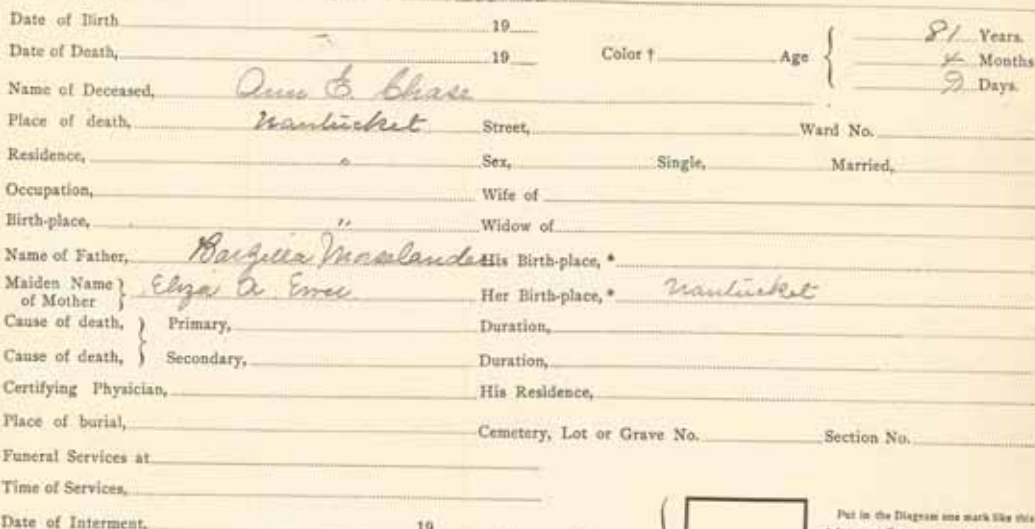 Date of Birth 19
Date of Death, 19 Color † Age 81 Years.
4 Months
9 Days.
Name of Deceased, Ann E. Chase
Place of death, Nantucket Street, Ward No.
Residence, " Sex, Single, Married,
Occupation, Wife of
Birth-place, " Widow of
Name of Father, Barzilla Morselander His Birth-place, *
Maiden Name of Mother } Eliza A. Her Birth-place, * Nantucket
Cause of death, } Primary, Duration,
Cause of death, } Secondary, Duration,
Certifying Physician, His Residence,
Place of burial, Cemetery, Lot or Grave No. Section No.
Funeral Services at
Time of Services,
Date of Interment, 19 Put in the Diagram one mark like this